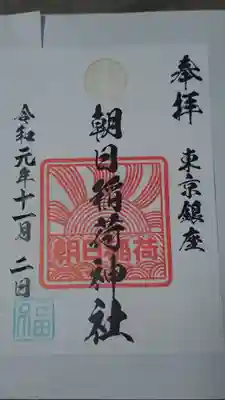 奉拝 東京銀座
朝日稲荷神社
朝日稲荷
令和元年十一月二日
福